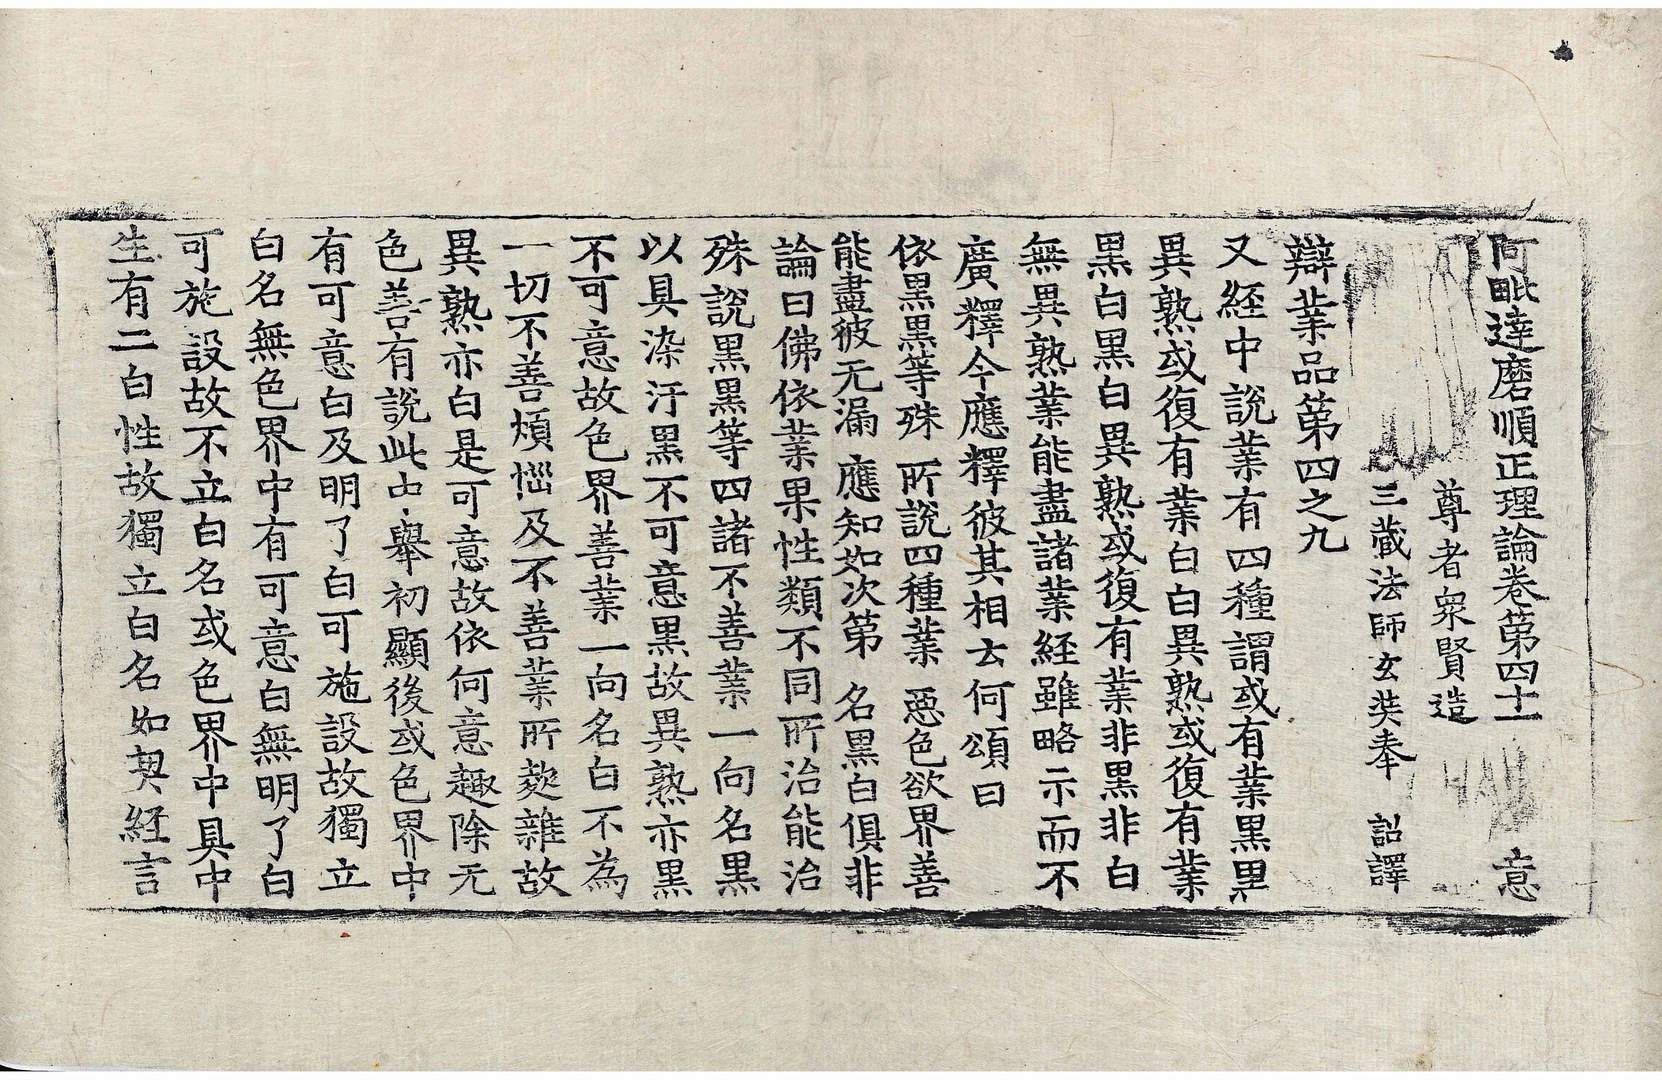 阿毗達磨順正理論卷第四十一 意
尊者衆賢造
三藏法師玄奘奉 詔譯
辯業品第四之九
又經中說業有四種謂或有業黑黑
異熟或復有業白白異熟或復有業
黑白黑白異熟或復有業非黑非白
無異熟業能盡諸業經雖略示而不
廣釋今應釋彼其相云何頌曰
依黑黑等殊 所說四種業 惡色欲界善
能盡彼无漏 應知如次第 名黑白俱非
論曰佛依業果性類不同所治能治
殊說黑黑等四諸不善業一向名黑
以具染汙黑不可意黑故異熟亦黑
不可意故色界善業一向名白不為
一切不善煩惱及不善業所𣣋雜故
異熟亦白是可意故依何意趣除无
色善有說此中舉初顯後或色界中
有可意白及明了白可施設故獨立
白名無色界中有可意白無明了白
可施設故不立白名或色界中具中
生有二白性故獨立白名如契經言